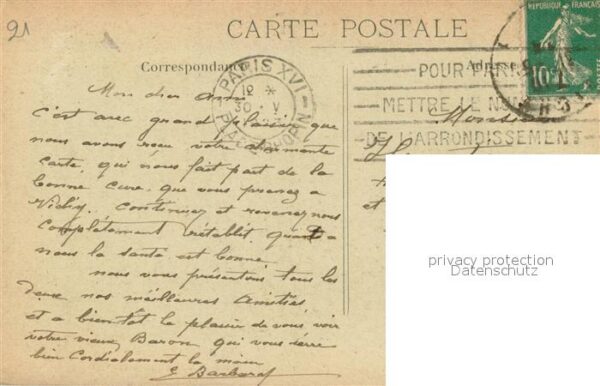 91
CARTE POSTALE
RÉPUBLIQUE FRANÇAISE
10
POSTES
Correspondance
Adresse
PARIS XVI
12 *
30 V
POUR PARIS
METTRE LE N
DE L'ARRONDISSEMENT
Mon cher Ami
c'est avec grand plaisir que
nous avons reçu votre charmante
carte, qui nous fait part de la
bonne cure, que vous prenez a
Vichy. Continuez et revenez nous
complètement rétablit, quand a
nous la santé est bonne
nous vous présentons tous les
deux nos meilleures Amitiés
et a bientôt le plaisir de vous voir
votre vieux Baron qui vous serre
bien Cordialement la main
Monsieur
et
privacy protection
Datenschutz